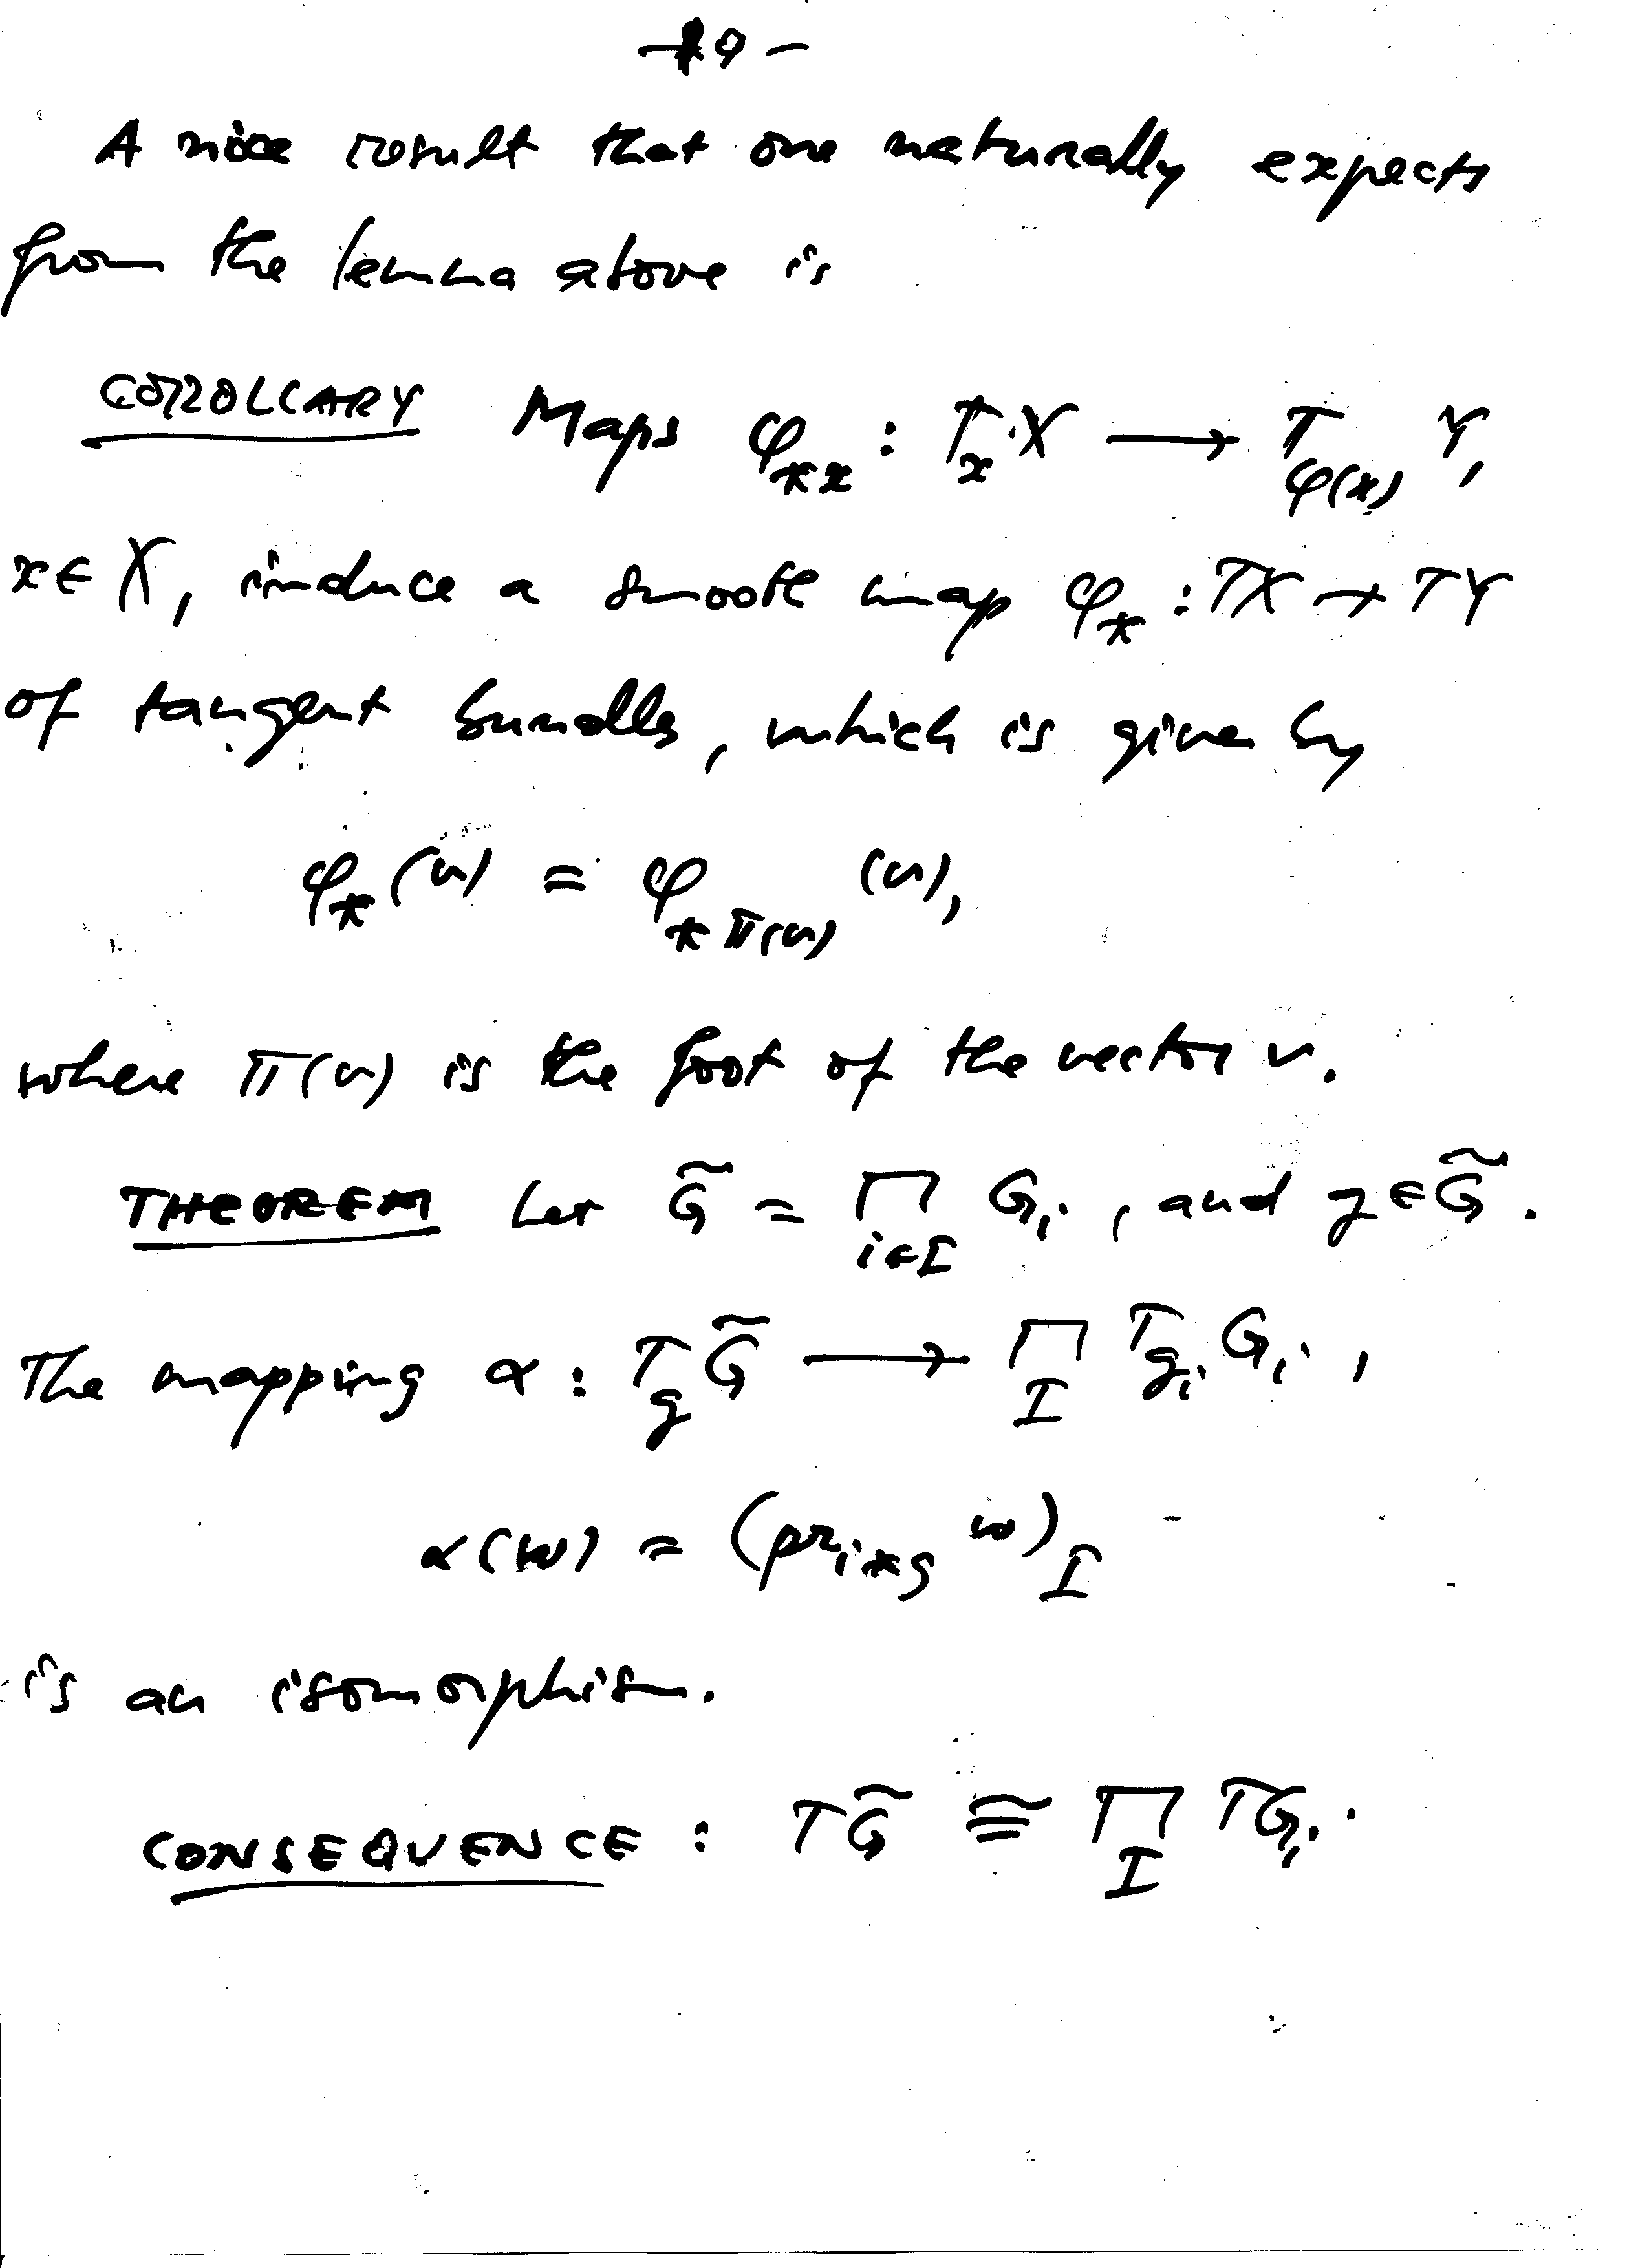 - 9 -
A nice result that one naturally expects
from the lemma above is
COROLLARY Maps φ_{*x} : T_x X ⟶ T_{φ(x)} Y,
x ∈ X, induce a smooth map φ_* : TX → TY
of tangent bundles, which is given by
φ_*(v) = φ_{*π(v)}(v),
where π(v) is the foot of the vector v.
THEOREM Let G̃ = ∏_{i∈I} G_i, and g ∈ G̃.
The mapping α : T_g G̃ ⟶ ∏_I T_{g_i} G_i,
α(w) = (pr_{i*g} w)_I
is an isomorphism.
CONSEQUENCE : TG̃ ≅ ∏_I TG_i.